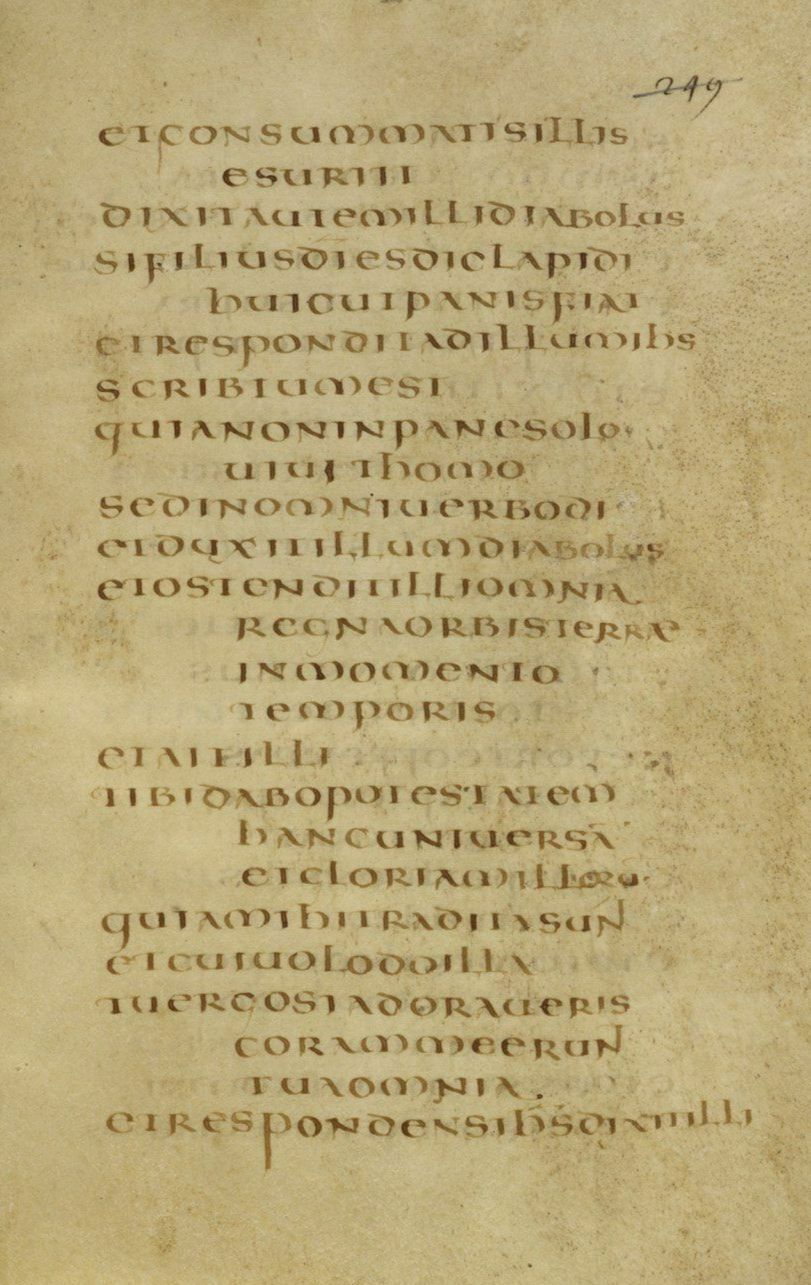 249
etconsummatisillis
esuriit
dixitautemillidiabolus
sifiliusdiesdiclapidi
huicutpanisfiat
etresponditadillumihs
scribtumest
quianoninpanesolo
uiuitthomo
sedinomniuerbodi
etduxitillumdiabolus
etostenditilliomnia
regnaorbisterrae
inmomento
temporis
etaitilli
tibidabopotestatem
hancuniuersa
etgloriamilloru
quiamihitraditasunt
etcuiuolodoilla
tuergositadoraueris
corammeerunt
tuaomnia.
etrespondensihsdixitilli